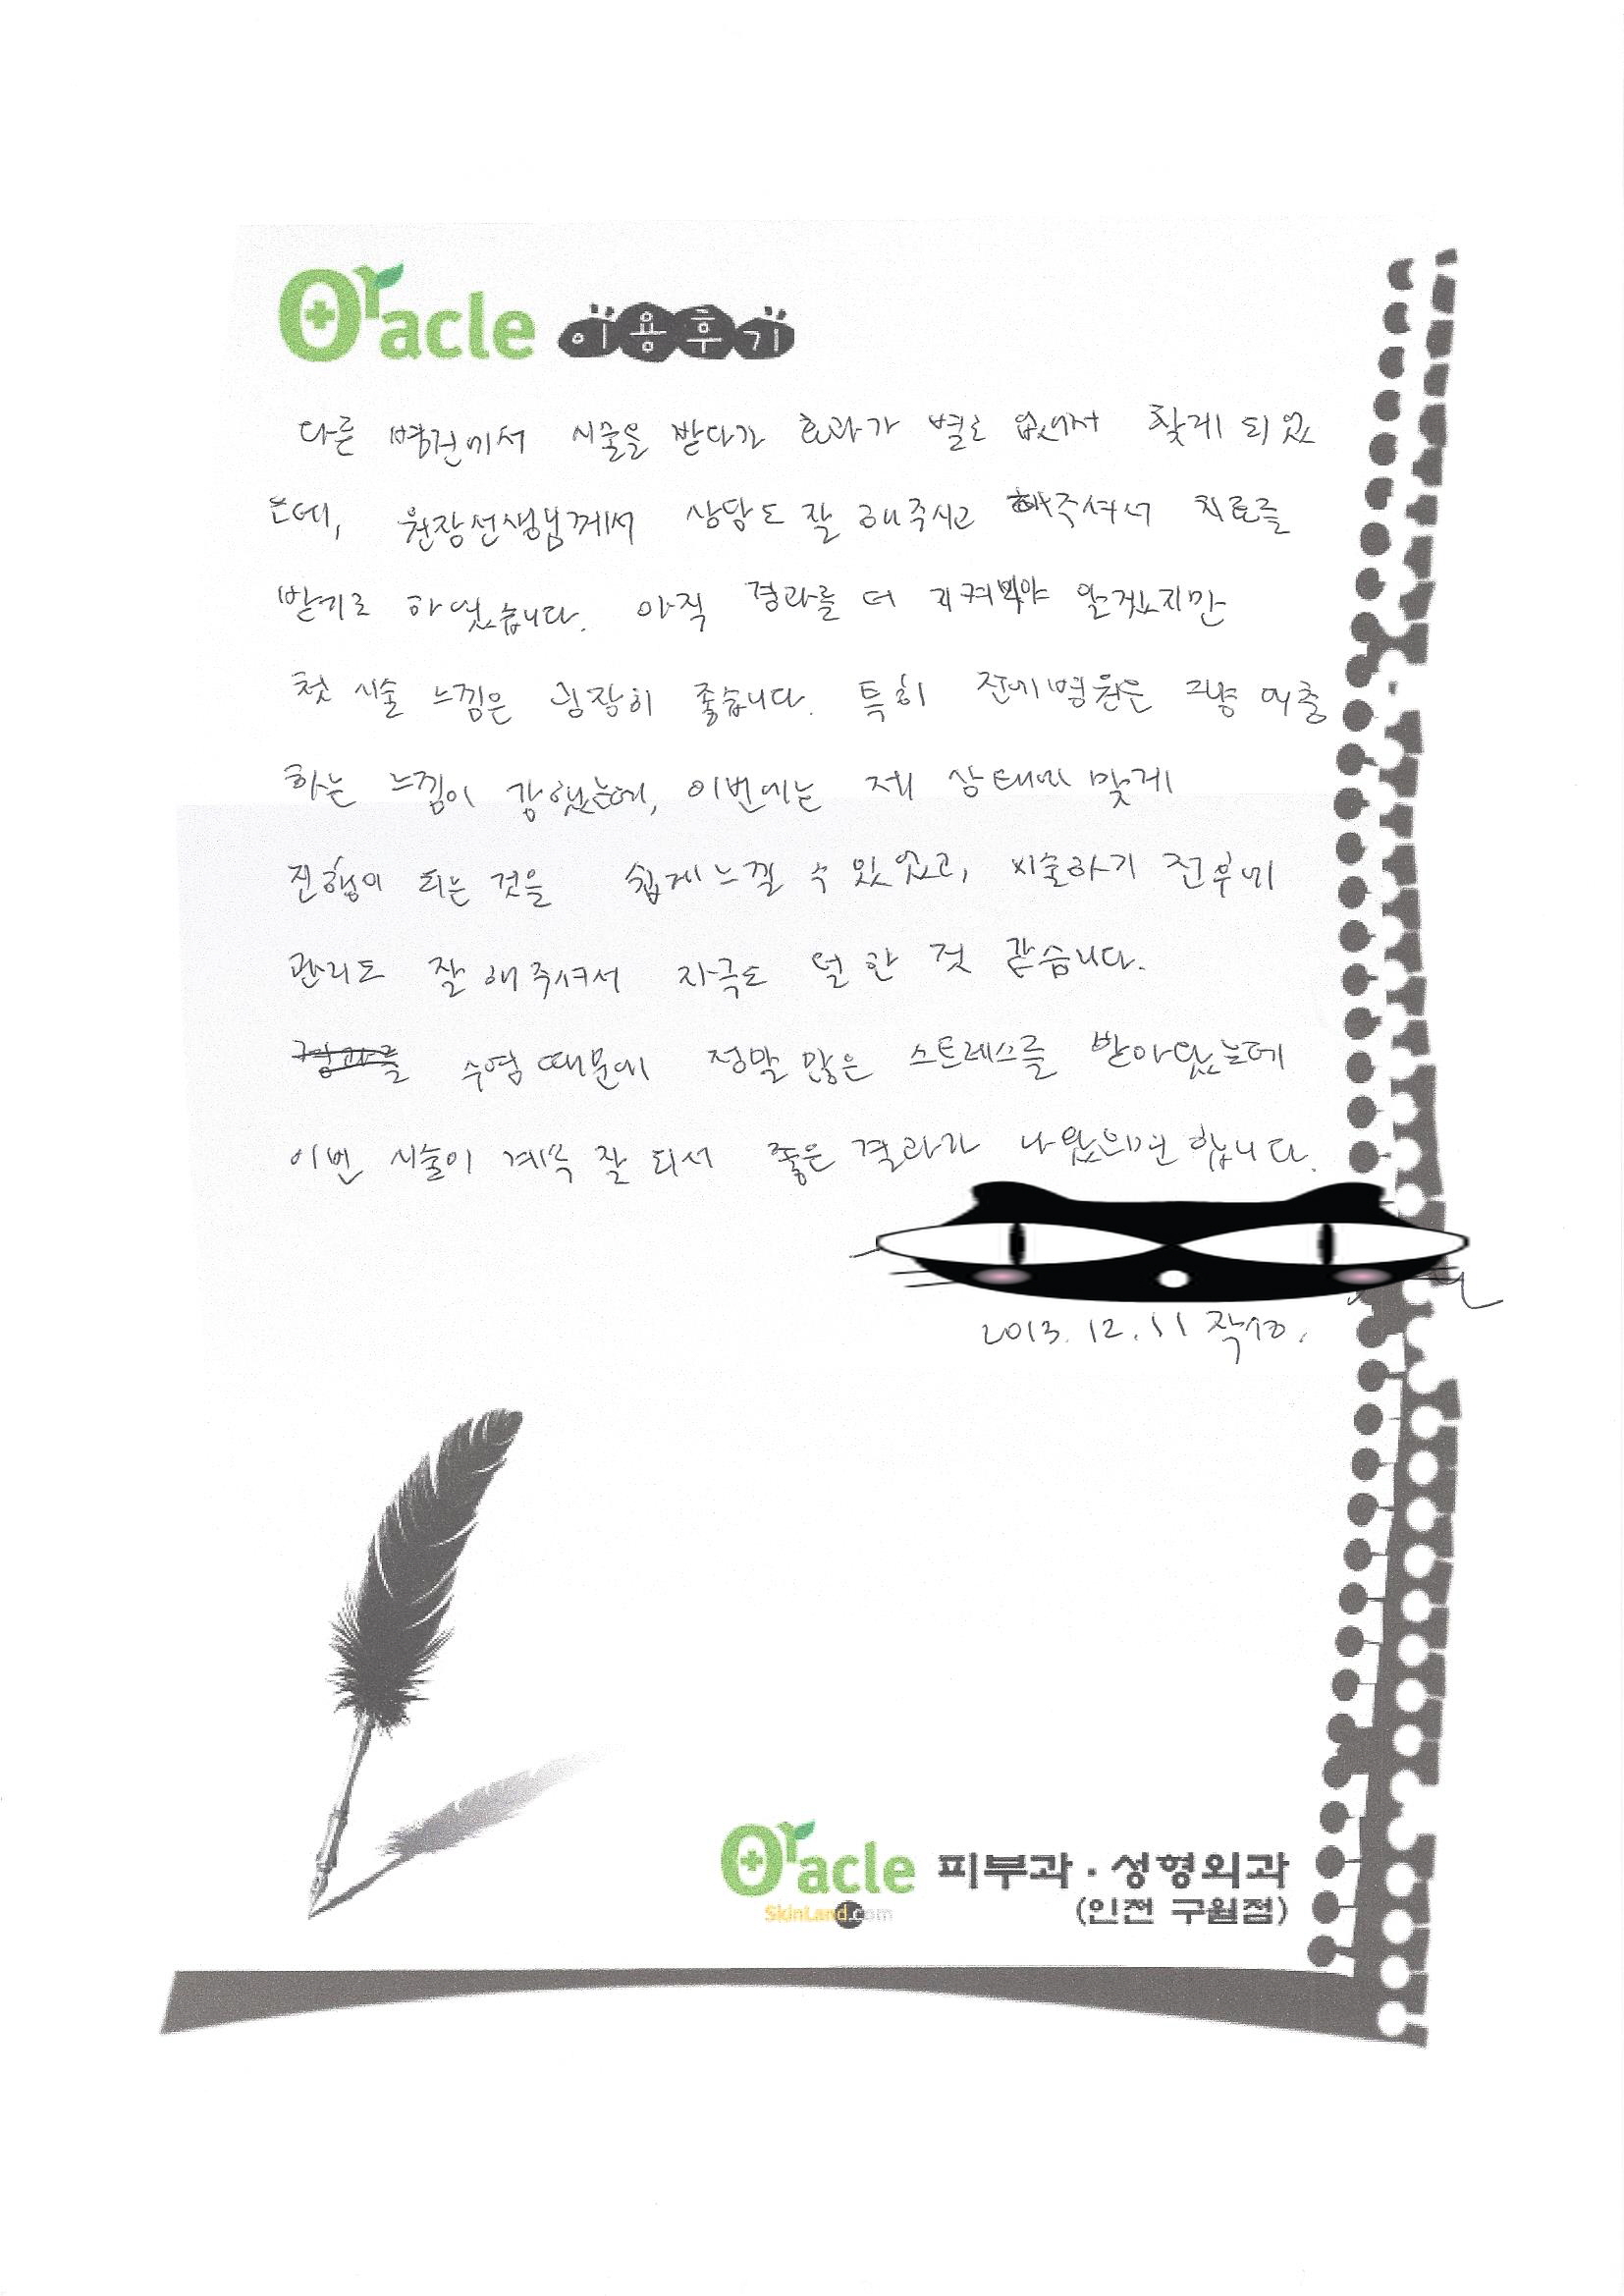 Oracle 이용후기
다른 병원에서 시술을 받다가 효과가 별로 없어서 찾게 되었
는데, 원장선생님께서 상담도 잘 해주시고 해주셔서 치료를
받기로 하였습니다. 아직 경과를 더 지켜봐야 알겠지만
첫 시술 느낌은 굉장히 좋습니다. 특히 전에 병원은 그냥
하는 느낌이 강했는데, 이번에는 제 상태에 맞게
진행이 되는 것을 쉽게 느낄 수 있었고, 시술하기 전후에
관리도 잘 해주셔서 자극도 덜 한 것 같습니다.
수염 때문에 정말 많은 스트레스를 받아왔는데
이번 시술이 계속 잘 되서 좋은 결과가 나왔으면 합니다.
2013. 12. 11 작성.
Oracle 피부과·성형외과
SkinLand.com (인천 구월점)